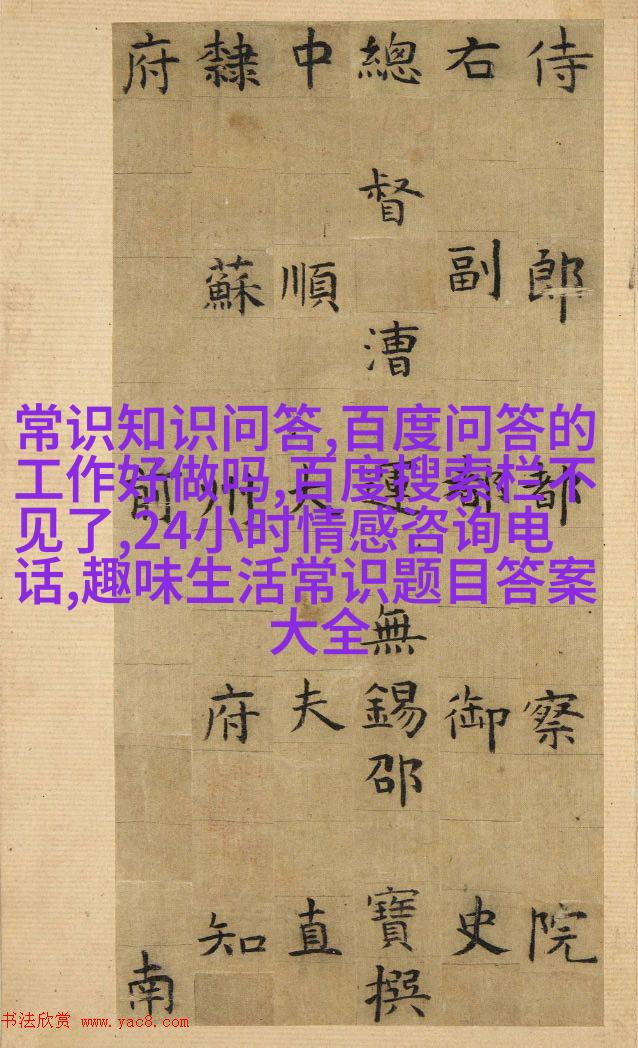 侍郎都察院
右副都御史
總督漕運無錫邵寶撰
中順大夫直
隸蘇州府知
府前南
常识知识问答,百度问答的
工作好做吗,百度搜索栏不
见了,24小时情感咨询电
话,趣味生活常识题目答案
大全
书法欣赏 www.yac8.com